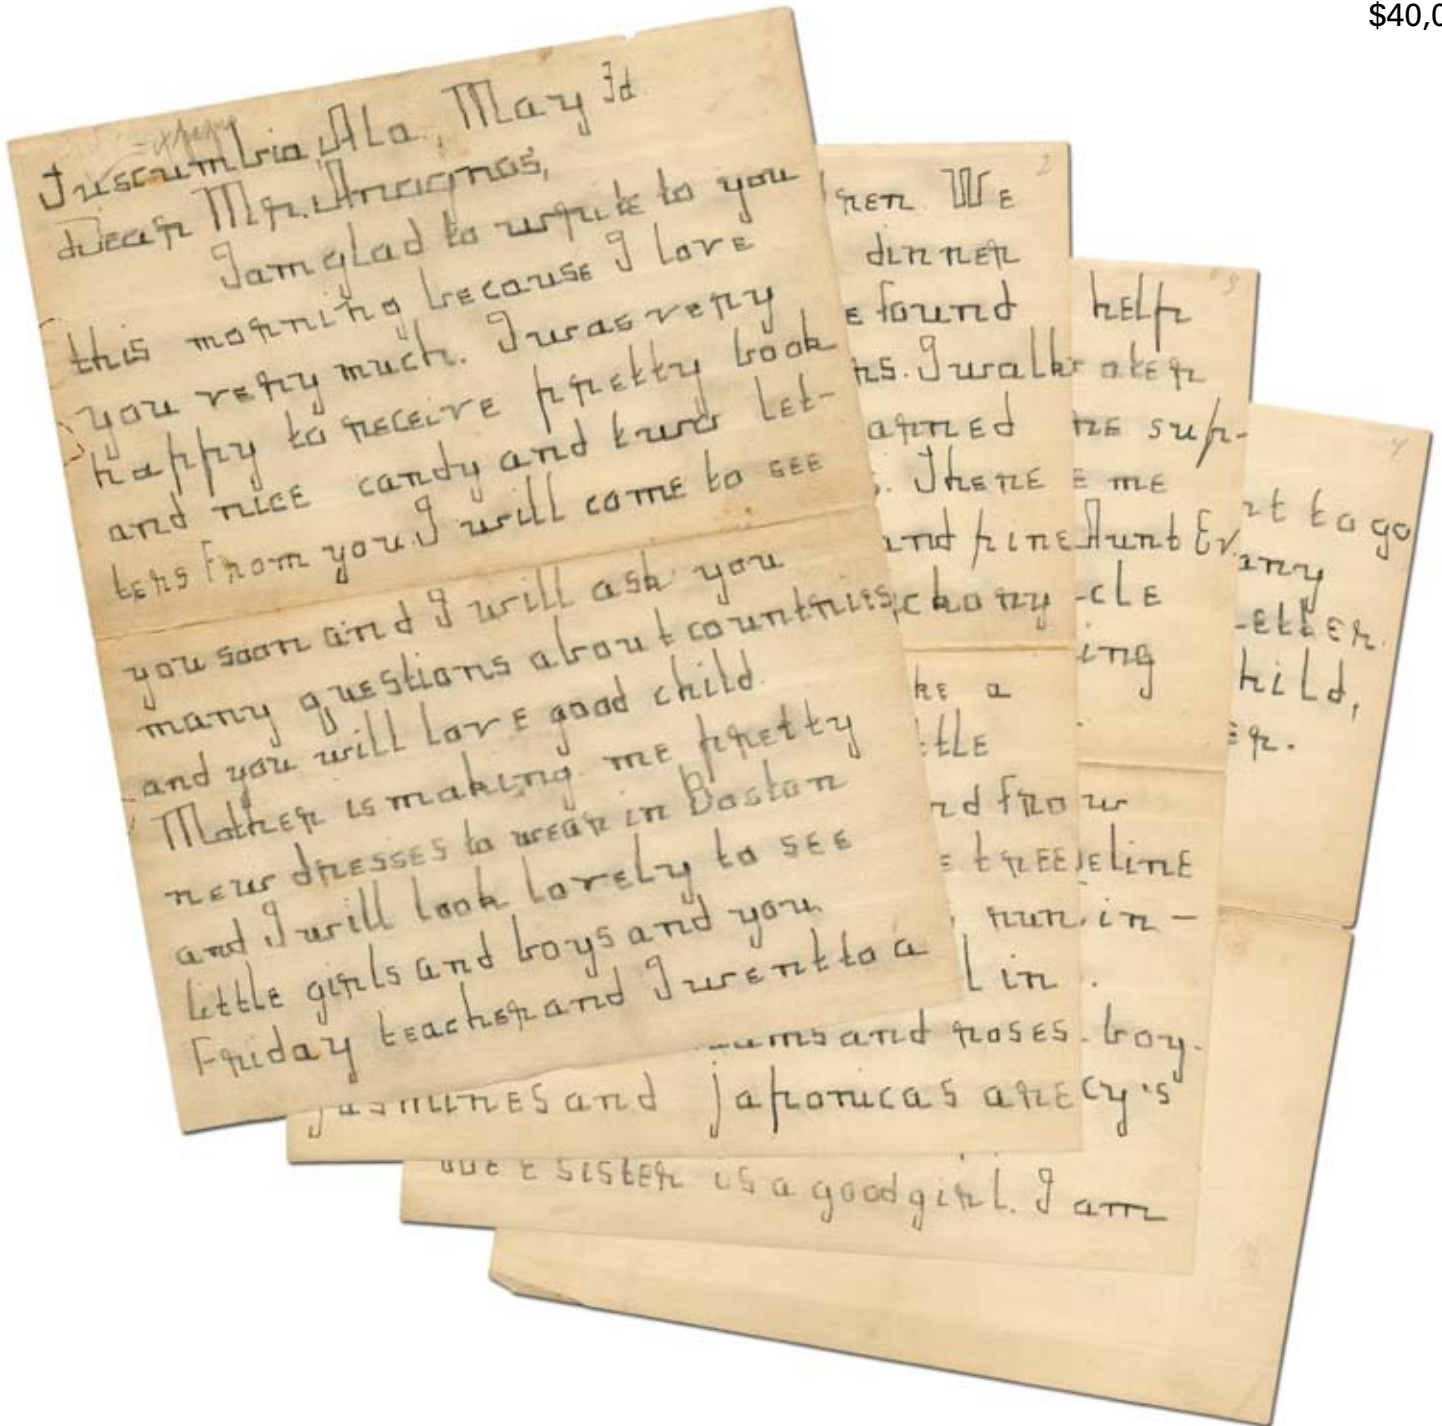 $40,0
Tuscumbia, Ala., May 3d.
Dear Mr. Anagnos,
I am glad to write to you
this morning because I love
you very much. I was very
happy to receive pretty book
and nice candy and two let-
ters from you. I will come to see
you soon and I will ask you
many questions about countries
and you will love good child.
Mother is making me pretty
new dresses to wear in Boston
and I will look lovely to see
little girls and boys and you.
Friday teacher and I went to a
2
ren. We
dinner
e found
ns. I walk
arned
s. There
and pine
ckory
ke a
ttle
nd
e tree
run
l in
ums and roses.
jasmines and japonicas are
3
help
ater
me sup-
e me
Aunt Ev.
cle
ing
from
eline
in-
.
boy.
cy's
sister is a good girl. I am
4
nt to go
any
letter.
hild,
er.